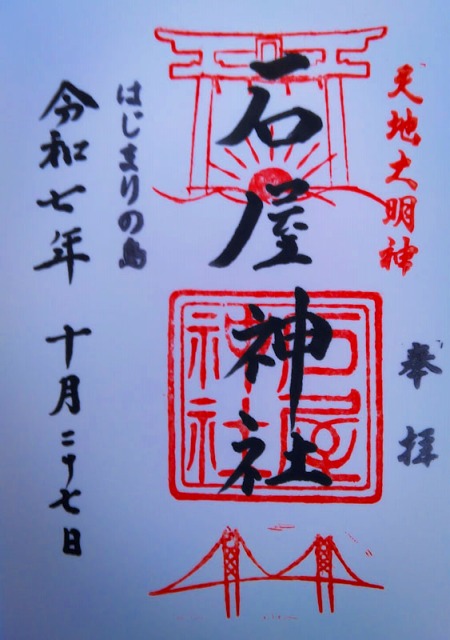 天地大明神
奉拝
石屋神社
石屋神社
はじまりの島
令和七年 十月二十七日